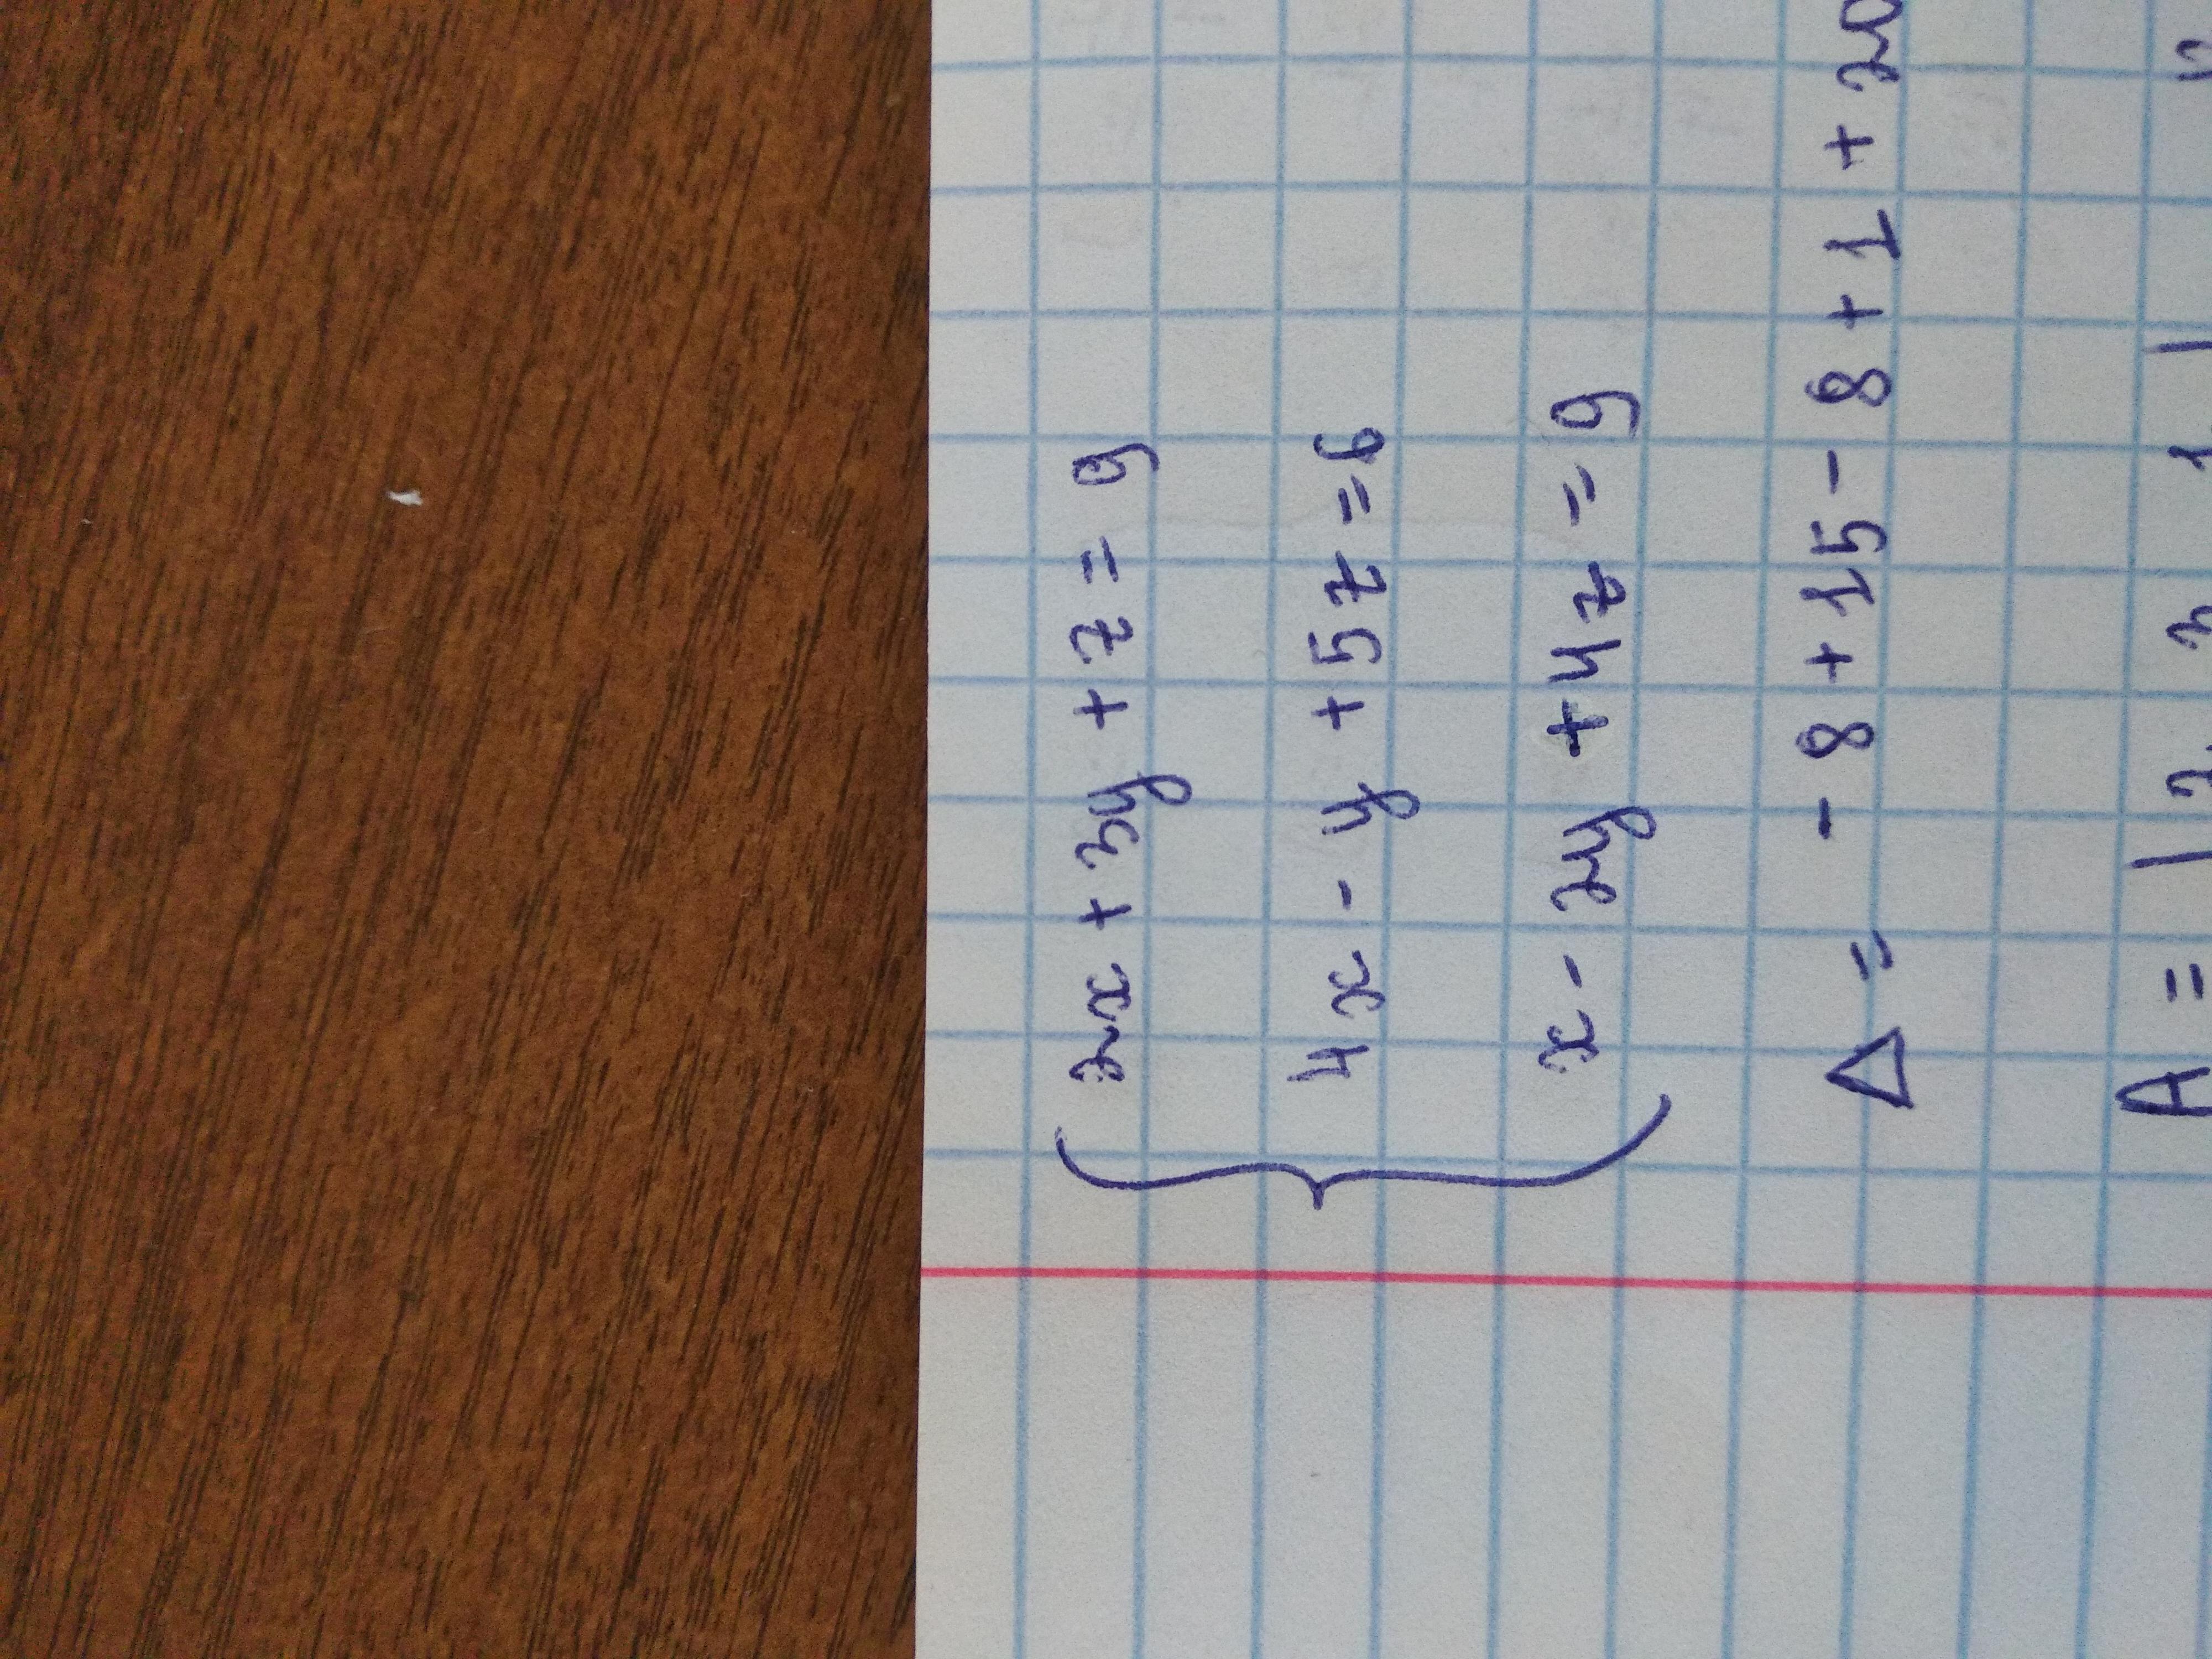 2x + 3y + z = 9
4x - y + 5z = 6
x - 2y + 4z = 9
Δ = - 8 + 15 - 8 + 1 + 20
A = | 2 3 1 |